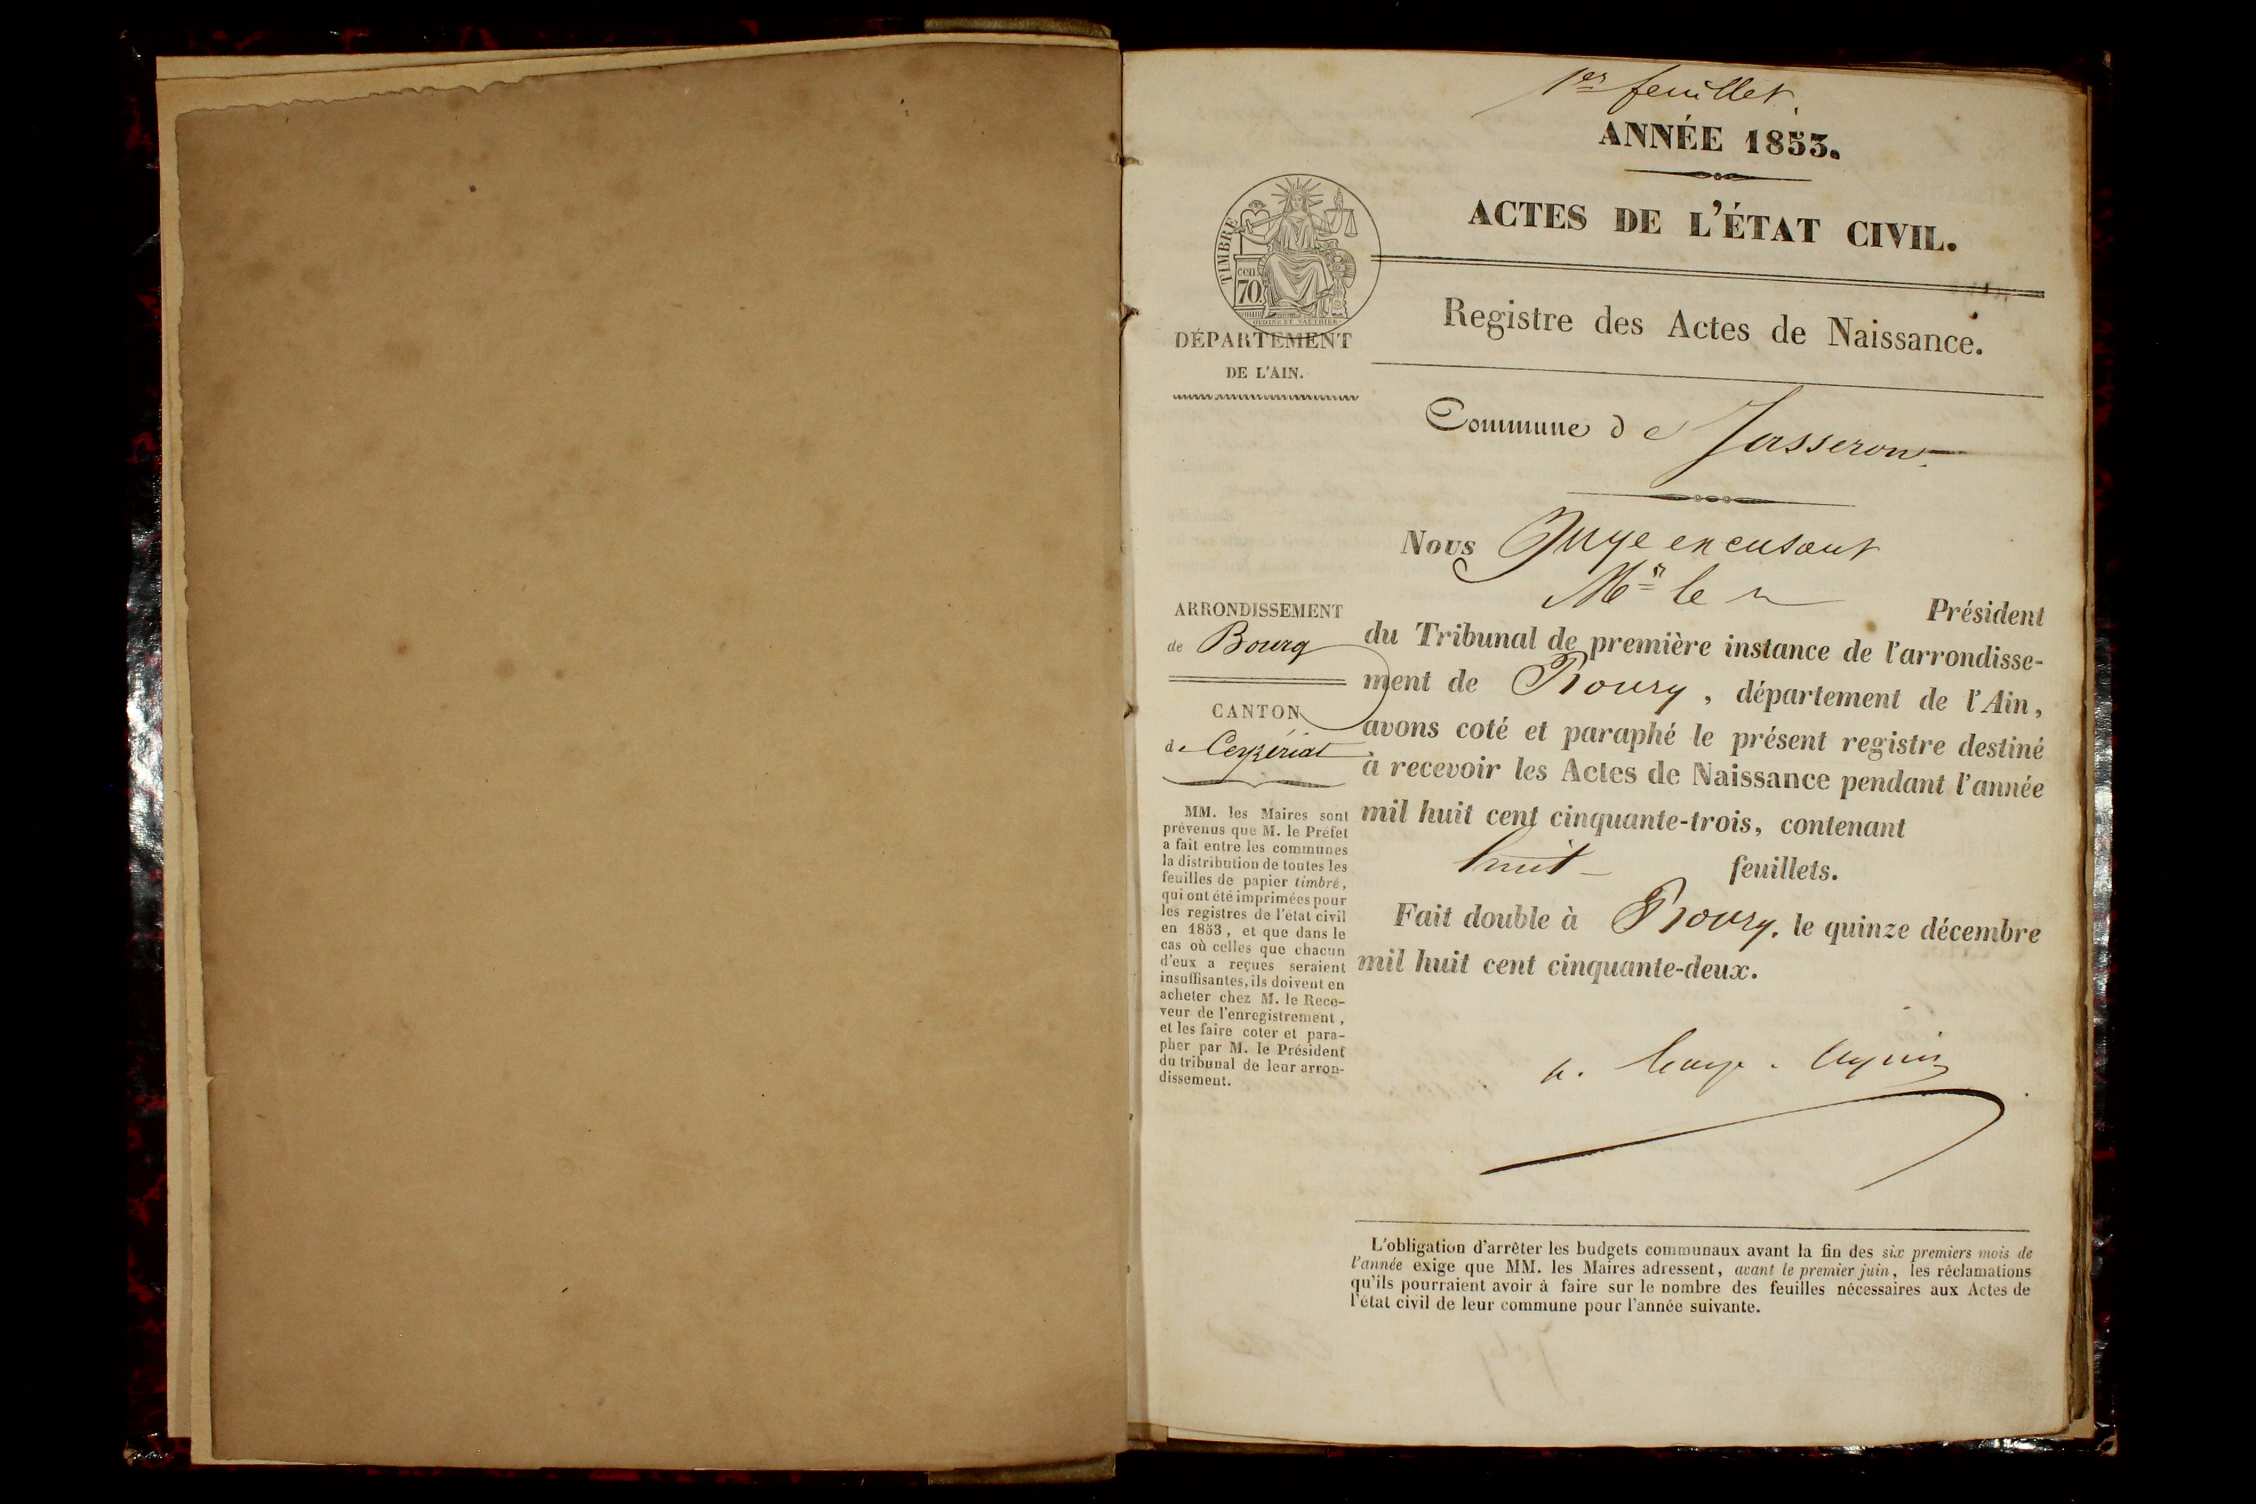 1er feuillet.
ANNÉE 1853.
ACTES DE L'ÉTAT CIVIL.
TIMBRE
cen
70
DÉPARTEMENT
DE L'AIN.
Registre des Actes de Naissance.
Commune de Jasseron
Nous Juge excusant
Mr le Président
du Tribunal de première instance de l'arrondisse-
ment de Bourg, département de l'Ain,
avons coté et paraphé le présent registre destiné
à recevoir les Actes de Naissance pendant l'année
mil huit cent cinquante-trois, contenant
huit feuillets.
Fait double à Bourg, le quinze décembre
mil huit cent cinquante-deux.
ARRONDISSEMENT
de Bourg
CANTON
de Ceyzériat
MM. les Maires sont
prévenus que M. le Préfet
a fait entre les communes
la distribution de toutes les
feuilles de papier timbré,
qui ont été imprimées pour
les registres de l'état civil
en 1853, et que dans le
cas où celles que chacun
d'eux a reçues seraient
insuffisantes, ils doivent en
acheter chez M. le Rece-
veur de l'enregistrement,
et les faire coter et para-
pher par M. le Président
du tribunal de leur arron-
dissement.
L'obligation d'arrêter les budgets communaux avant la fin des six premiers mois de
l'année exige que MM. les Maires adressent, avant le premier juin, les réclamations
qu'ils pourraient avoir à faire sur le nombre des feuilles nécessaires aux Actes de
l'état civil de leur commune pour l'année suivante.